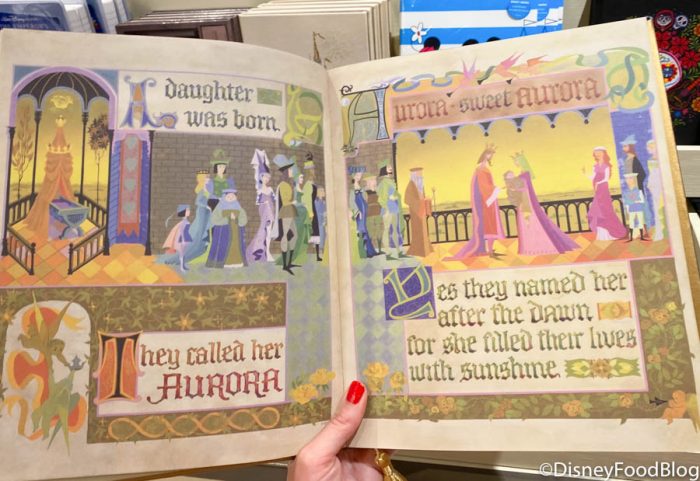 A daughter
was born.
They called her
AURORA
Aurora - sweet Aurora
Yes they named her
after the dawn
for she filled their lives
with sunshine.
©DisneyFoodBlog